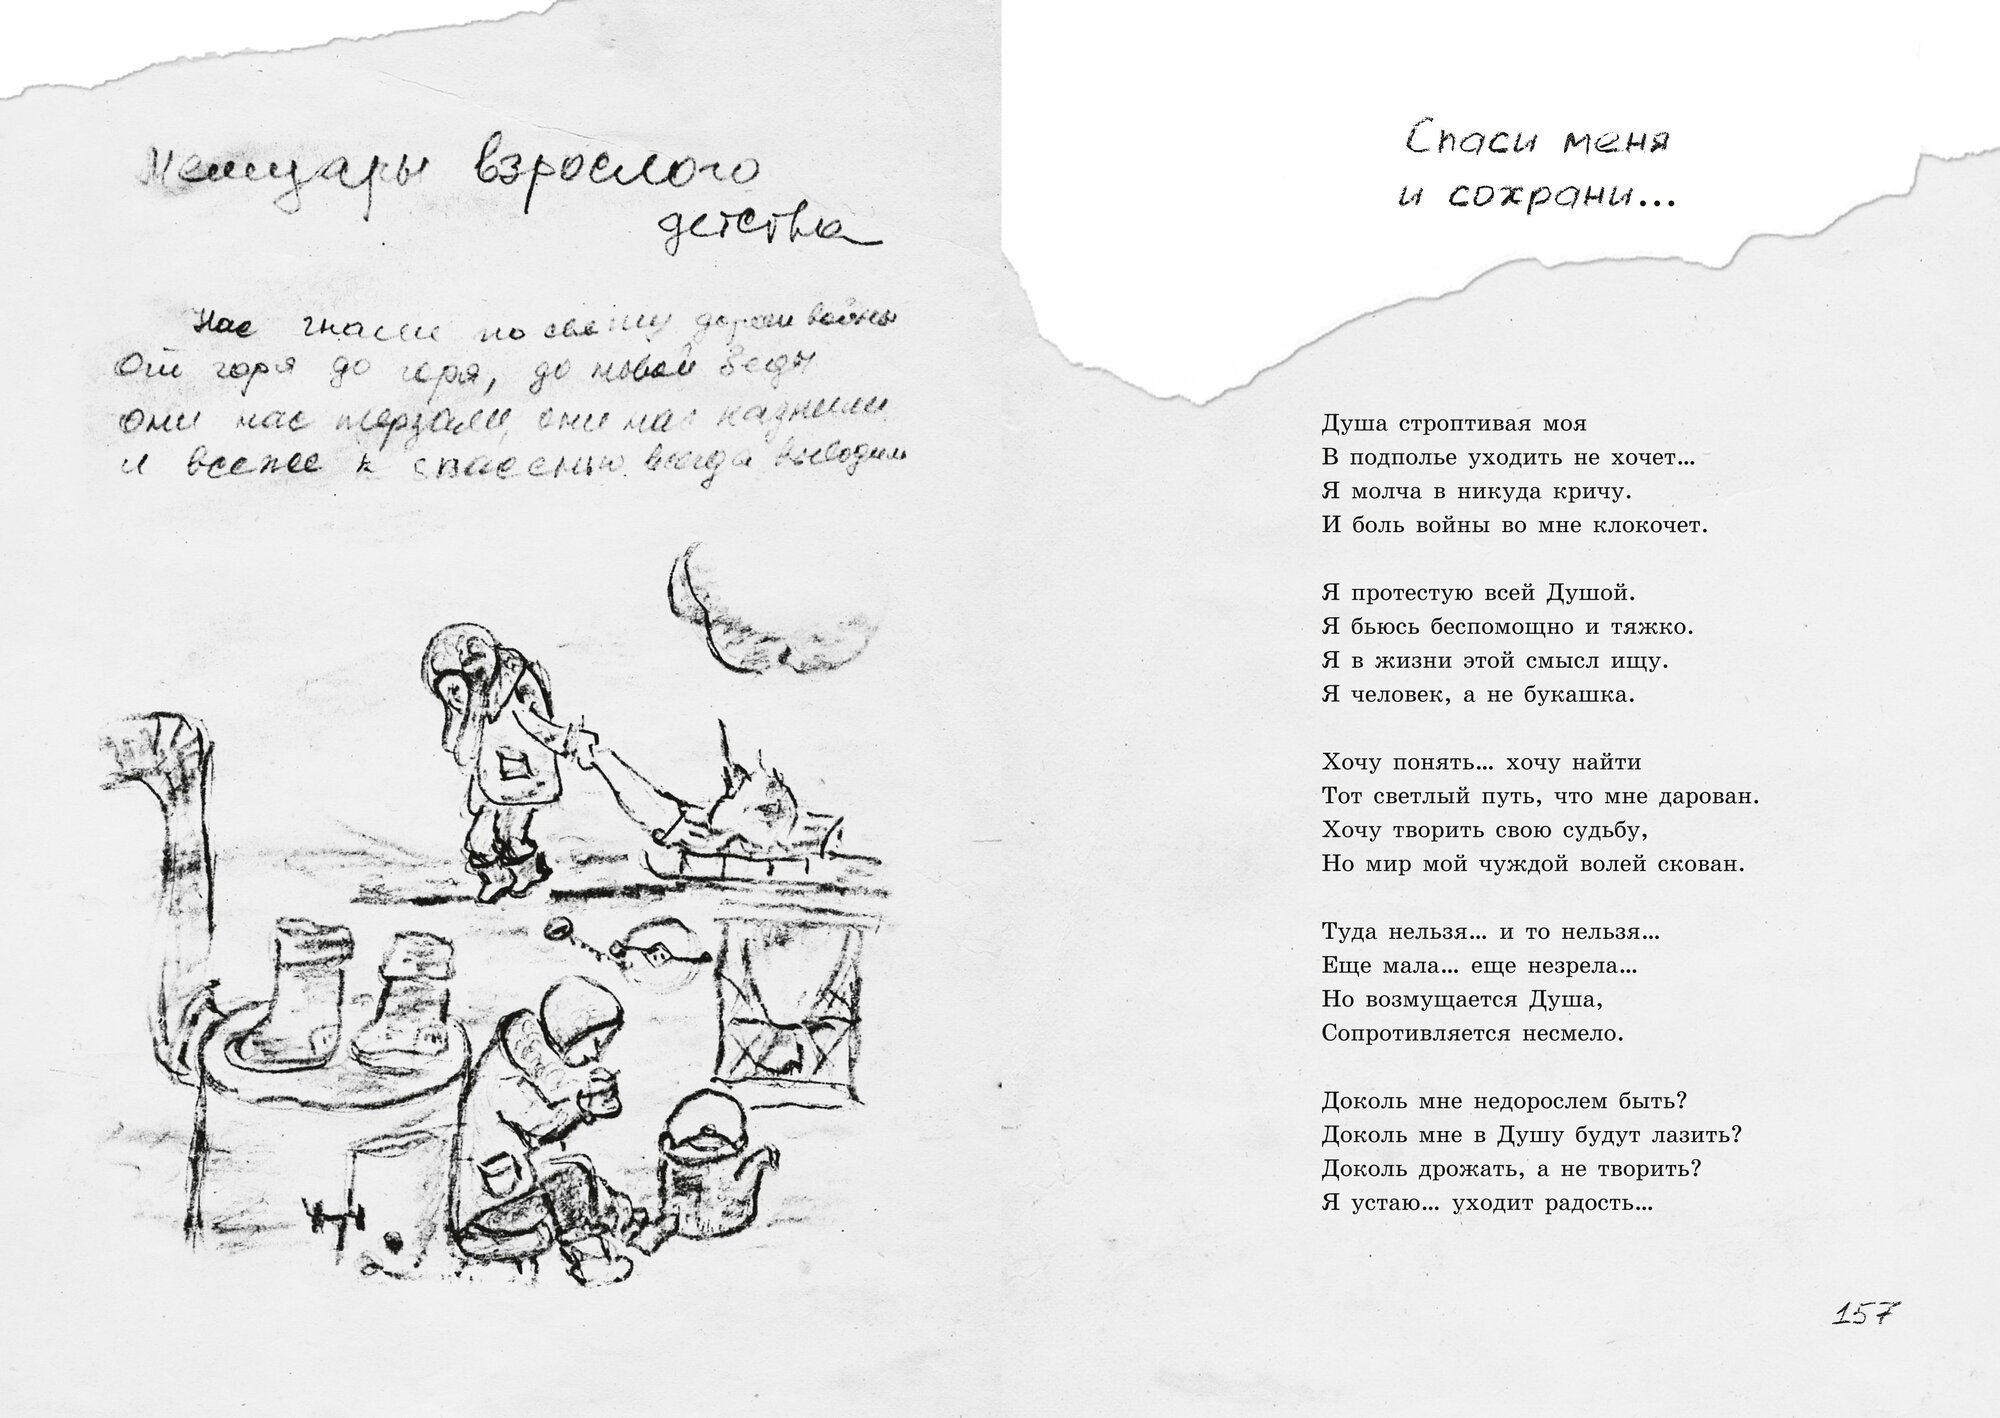 Мемуары взрослого
детства
Нас гнали по свету дороги войны
От горя до горя, до новой беды
они нас терзали, они нас казнили
и все же к спасенью всегда выводили
Спаси меня
и сохрани...
Душа строптивая моя
В подполье уходить не хочет...
Я молча в никуда кричу.
И боль войны во мне клокочет.
Я протестую всей Душой.
Я бьюсь беспомощно и тяжко.
Я в жизни этой смысл ищу.
Я человек, а не букашка.
Хочу понять... хочу найти
Тот светлый путь, что мне дарован.
Хочу творить свою судьбу,
Но мир мой чуждой волей скован.
Туда нельзя... и то нельзя...
Еще мала... еще незрела...
Но возмущается Душа,
Сопротивляется несмело.
Доколь мне недорослем быть?
Доколь мне в Душу будут лазить?
Доколь дрожать, а не творить?
Я устаю... уходит радость...
157